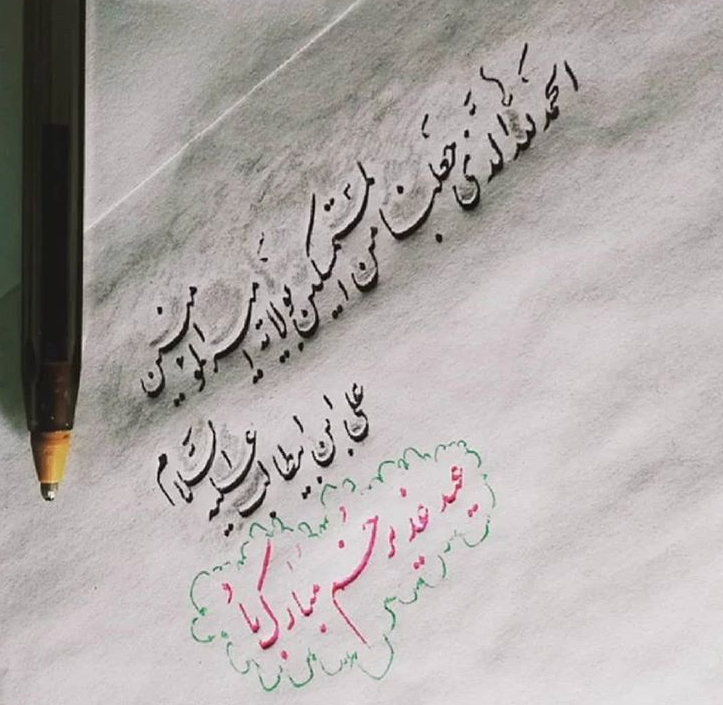 الحمد لله الذی جعلنا من المتمسکین بولایة امیرالمؤمنین
علی ابن ابیطالب علیه السلام
عید غدیر خم مبارک باد